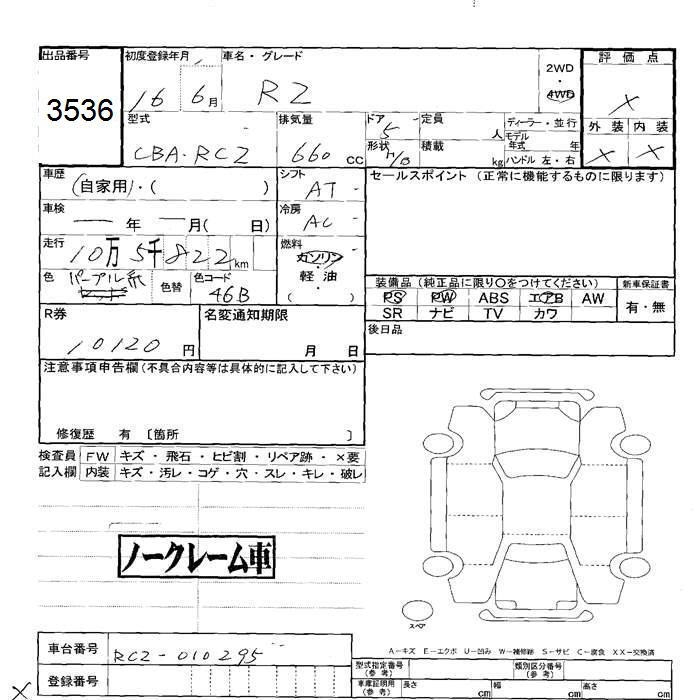 出品番号 初度登録年月 車名・グレード 2WD 評価点
3536 16 6月 R2 4WD ×
型式 排気量 ドア 定員 ディーラー・並行 外装 内装
CBA-RC2 660 cc 5 人 モデル年式 年 × ×
形状 積載 kg ハンドル 左・右
車歴 (自家用)・( ) シフト AT セールスポイント (正常に機能するものに限ります)
車検 年 月( 日) 冷房 AC
走行 10万5千822km 燃料 ガソリン
色 パープル 色替 色コード 46B 軽油 ( ) 装備品 (純正品に限り○をつけてください) 新車保証書
PS PW ABS エアB AW 有・無
SR ナビ TV カワ
R券 名変通知期限 後日品
10120 円 月 日
注意事項申告欄 (不具合内容等は具体的に記入して下さい)
修復歴 有 〔箇所 〕
検査員 FW キズ・飛石・ヒビ割・リペア跡・×要
記入欄 内装 キズ・汚レ・コゲ・穴・スレ・キレ・破レ
ノークレーム車
スペア
A-キズ E-エクボ U-凹み W-補修跡 S-サビ C-腐食 XX-交換済
車台番号 RC2-010295 型式指定番号 (参考) 類別区分番号 (参考)
登録番号 車庫証明用 (参考) 長さ cm 幅 cm 高さ cm
×